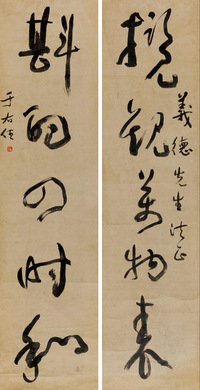 義德先生法正
攬觀萬物表
斟酌四時和
于右任